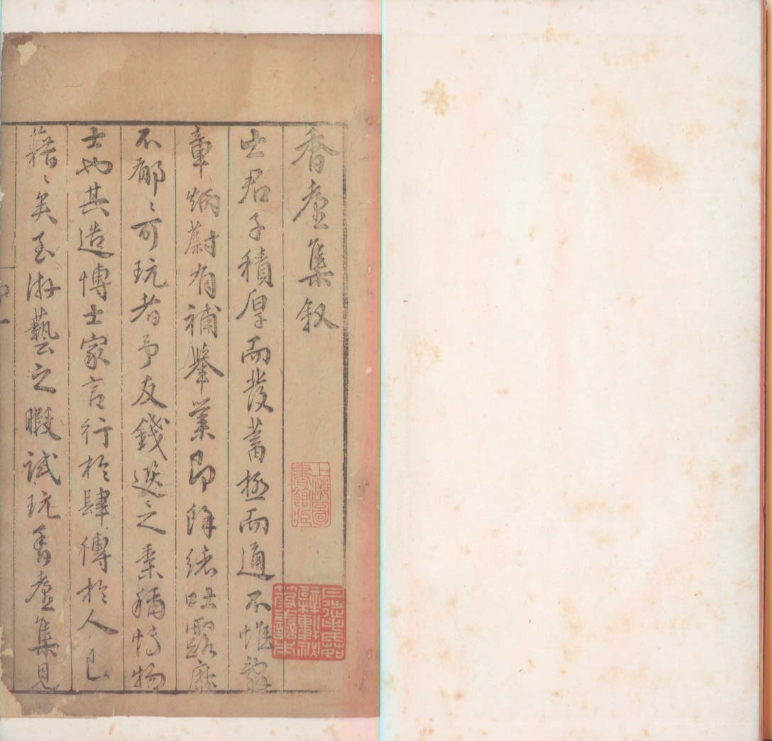 香奩集叙
士君子積厚而發蓄極而通不惟
章炳蔚有補舉業即緒吐露靡
不郁〻可玩者予友錢選之素稱博物
士也其造博士家言行於肆傳於人已
藉〻矣至游藝之暇試玩香奩集見